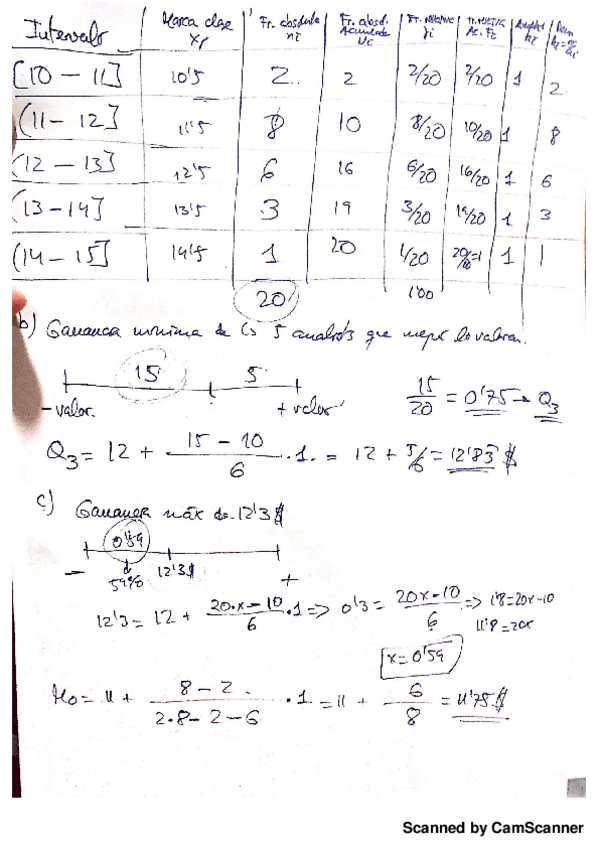 Intervalo Marca clase xi Fr. absoluta ni Fr. absol. Acumulada Ni Fr. relativa fi Fr. relativa Ac. Fi
[10 - 11] 10'5 2 2 2/20 2/20 1 2
(11 - 12] 11'5 8 10 8/20 10/20 1 8
(12 - 13] 12'5 6 16 6/20 16/20 1 6
(13 - 14] 13'5 3 19 3/20 19/20 1 3
(14 - 15] 14'5 1 20 1/20 20/20=1 1 1
20 1'00
b) Ganancia mínima de los 5 analistas que mejor lo valoran.
15 5
- valor. + valor
15/20 = 0'75 → Q3
Q3 = 12 + 15 - 10 / 6 · 1 = 12 + 5/6 = 12'83 $
c) Ganancia máx de 12'3 $
0'59
59% 12'3 $
- +
12'3 = 12 + 20·x - 10 / 6 · 1 => 0'3 = 20x - 10 / 6 => 1'8 = 20x - 10
11'8 = 20x
x = 0'59
Mo = 11 + 8 - 2 / 2·8 - 2 - 6 · 1 = 11 + 6 / 8 = 11'75 $
Scanned by CamScanner